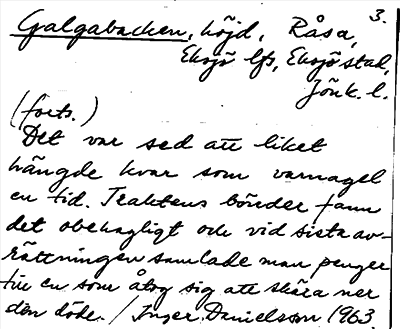 3.
Galgabacken, höjd, Råsa,
Eksjö lfs, Eksjö stad,
Jönk. l.
(forts.)
Det var sed att liket
hängde kvar som varnagel
en tid. Traktens bönder fann
det obehagligt och vid sista av-
rättningen samlade man penger
till en som åtog sig att skära ner
den döde. / Inger Danielsson 1963